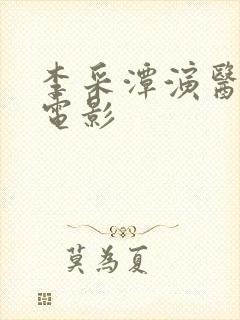 李采潭演醫
電影
莫為夏